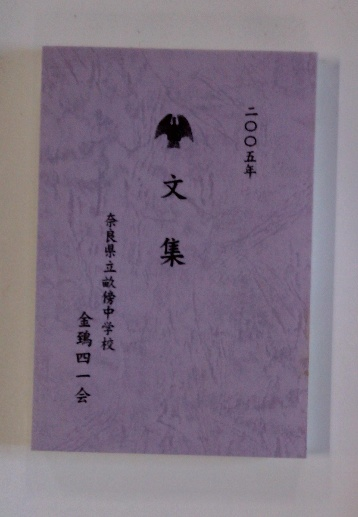 二〇〇五年
文集
奈良県立畝傍中学校
金鵄四一会